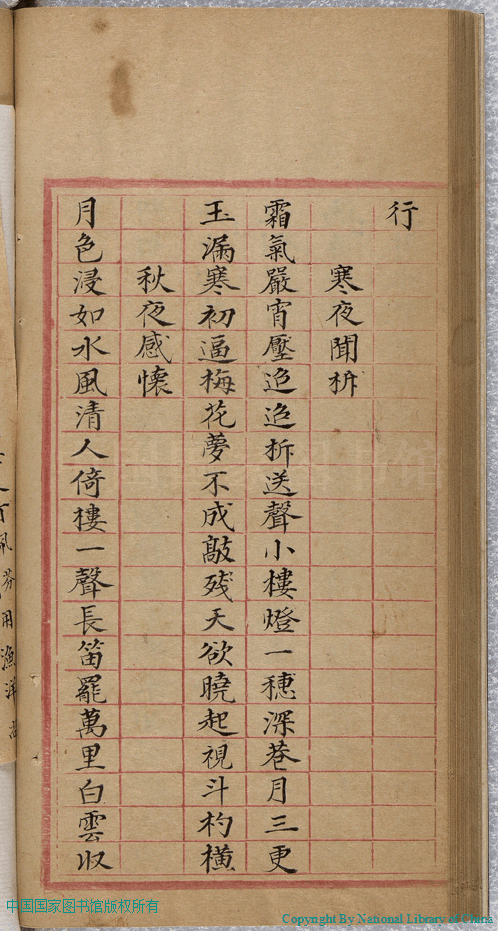 行
寒夜聞柝
霜氣嚴宵壓迢迢柝送聲小樓燈一穗深巷月三更
玉漏寒初逼梅花夢不成敲残天欲曉起視斗杓橫
秋夜感懷
月色浸如水風清人倚樓一聲長笛罷萬里白雲収
中国国家图书馆版权所有
Copyright By National Library of China